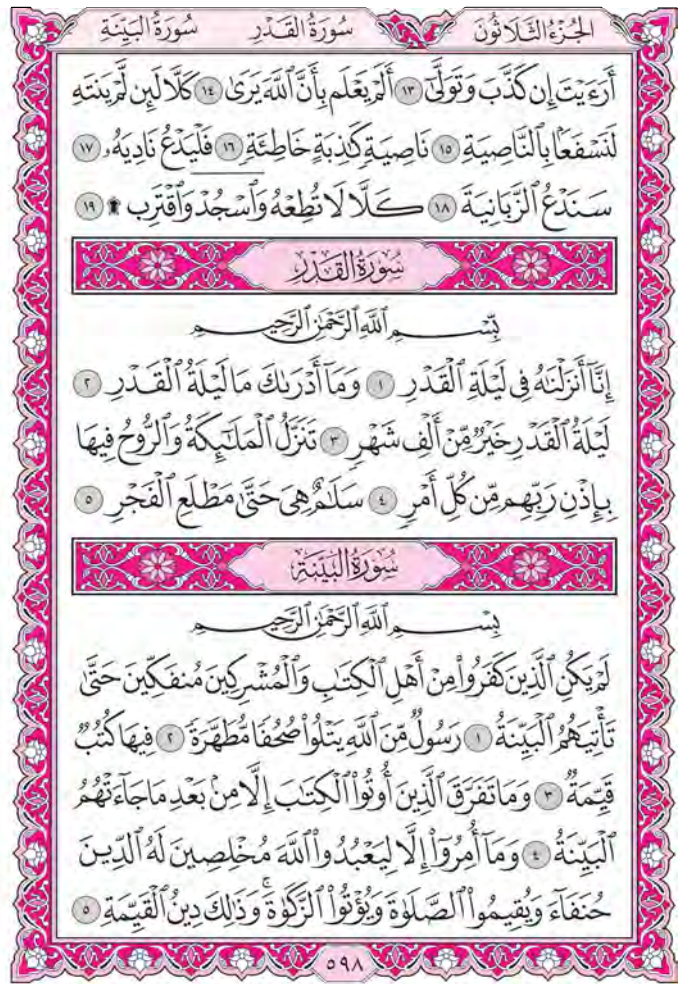 الجُزْءُ الثَّلَاثُونَ سُورَةُ القَدْرِ سُورَةُ البَيِّنَةِ
أَرَءَيْتَ إِن كَذَّبَ وَتَوَلَّىٰٓ ١٣ أَلَمْ يَعْلَم بِأَنَّ ٱللَّهَ يَرَىٰ ١٤ كَلَّا لَئِن لَّمْ يَنتَهِ
لَنَسْفَعَۢا بِٱلنَّاصِيَةِ ١٥ نَاصِيَةٖ كَٰذِبَةٍ خَاطِئَةٖ ١٦ فَلْيَدْعُ نَادِيَهُۥ ١٧
سَنَدْعُ ٱلزَّبَانِيَةَ ١٨ كَلَّا لَا تُطِعْهُ وَٱسْجُدْ وَٱقْتَرِب ۩ ١٩
سُورَةُ القَدْرِ
بِسْمِ ٱللَّهِ ٱلرَّحْمَٰنِ ٱلرَّحِيمِ
إِنَّآ أَنزَلْنَٰهُ فِى لَيْلَةِ ٱلْقَدْرِ ١ وَمَآ أَدْرَىٰكَ مَا لَيْلَةُ ٱلْقَدْرِ ٢
لَيْلَةُ ٱلْقَدْرِ خَيْرٌ مِّنْ أَلْفِ شَهْرٖ ٣ تَنَزَّلُ ٱلْمَلَٰٓئِكَةُ وَٱلرُّوحُ فِيهَا
بِإِذْنِ رَبِّهِم مِّن كُلِّ أَمْرٖ ٤ سَلَٰمٌ هِىَ حَتَّىٰ مَطْلَعِ ٱلْفَجْرِ ٥
سُورَةُ البَيِّنَةِ
بِسْمِ ٱللَّهِ ٱلرَّحْمَٰنِ ٱلرَّحِيمِ
لَمْ يَكُنِ ٱلَّذِينَ كَفَرُوا۟ مِنْ أَهْلِ ٱلْكِتَٰبِ وَٱلْمُشْرِكِينَ مُنفَكِّينَ حَتَّىٰ
تَأْتِيَهُمُ ٱلْبَيِّنَةُ ١ رَسُولٌ مِّنَ ٱللَّهِ يَتْلُوا۟ صُحُفًا مُّطَهَّرَةً ٢ فِيهَا كُتُبٌ
قَيِّمَةٌ ٣ وَمَا تَفَرَّقَ ٱلَّذِينَ أُوتُوا۟ ٱلْكِتَٰبَ إِلَّا مِنۢ بَعْدِ مَا جَآءَتْهُمُ
ٱلْبَيِّنَةُ ٤ وَمَآ أُمِرُوٓا۟ إِلَّا لِيَعْبُدُوا۟ ٱللَّهَ مُخْلِصِينَ لَهُ ٱلدِّينَ
حُنَفَآءَ وَيُقِيمُوا۟ ٱلصَّلَوٰةَ وَيُؤْتُوا۟ ٱلزَّكَوٰةَ ۚ وَذَٰلِكَ دِينُ ٱلْقَيِّمَةِ ٥
٥٩٨